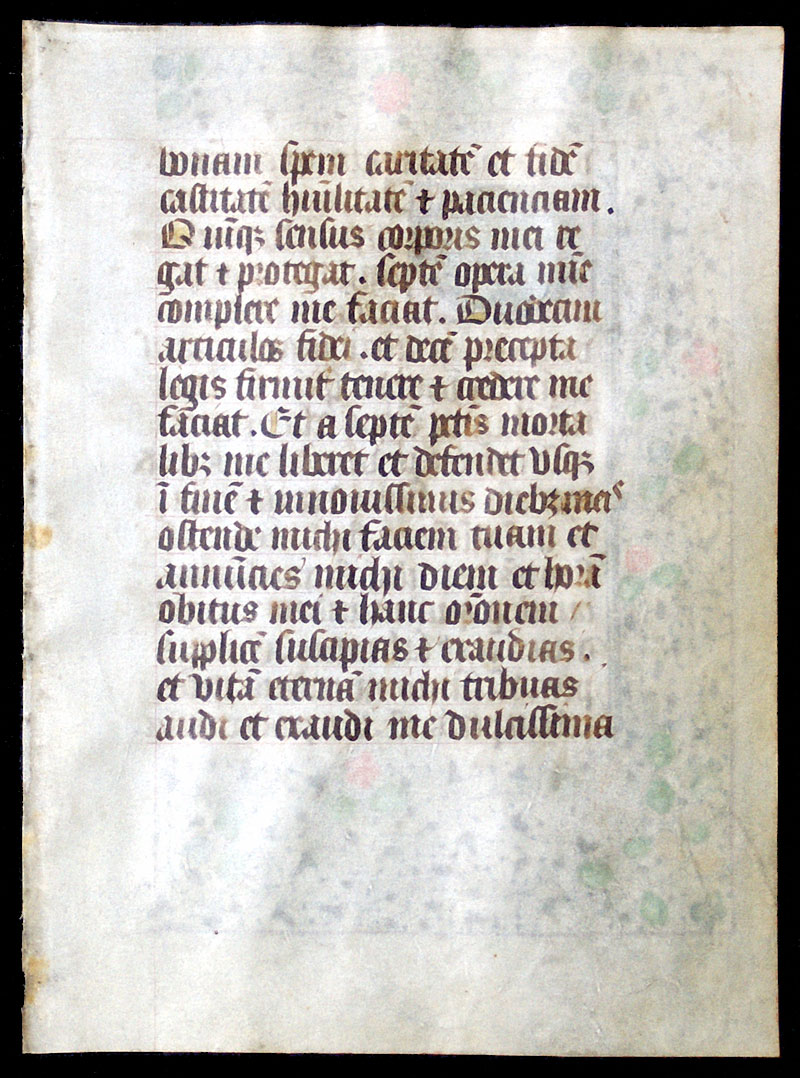 bonam spem caritatē et fidē
castitatē hūilitatē ⁊ pacienciam.
Quīqꝫ sensus corporis mei re
gat ⁊ protegat. septē opera mīe
complere me faciat. Duodecim
articulos fidei. et decē precepta
legis firmit tenere ⁊ credere me
faciat. Et a septē pctīs morta
libꝫ me liberet et defendet vsqꝫ
ī finē ⁊ innouissimis diebꝫ meis
ostende michi faciem tuam et
annūcies michi diem et horā
obitus mei ⁊ hanc orōnem
supplicē suscipias ⁊ exaudias.
et vitā eternā michi tribuas
audi et exaudi me dulcissima